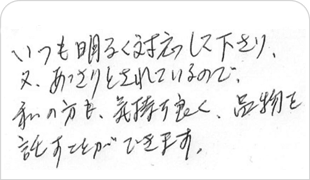 いつも明るく対応して下さり、
又、あっさりとされているので、
私の方も、気持ち良く、品物を
託すことができます。